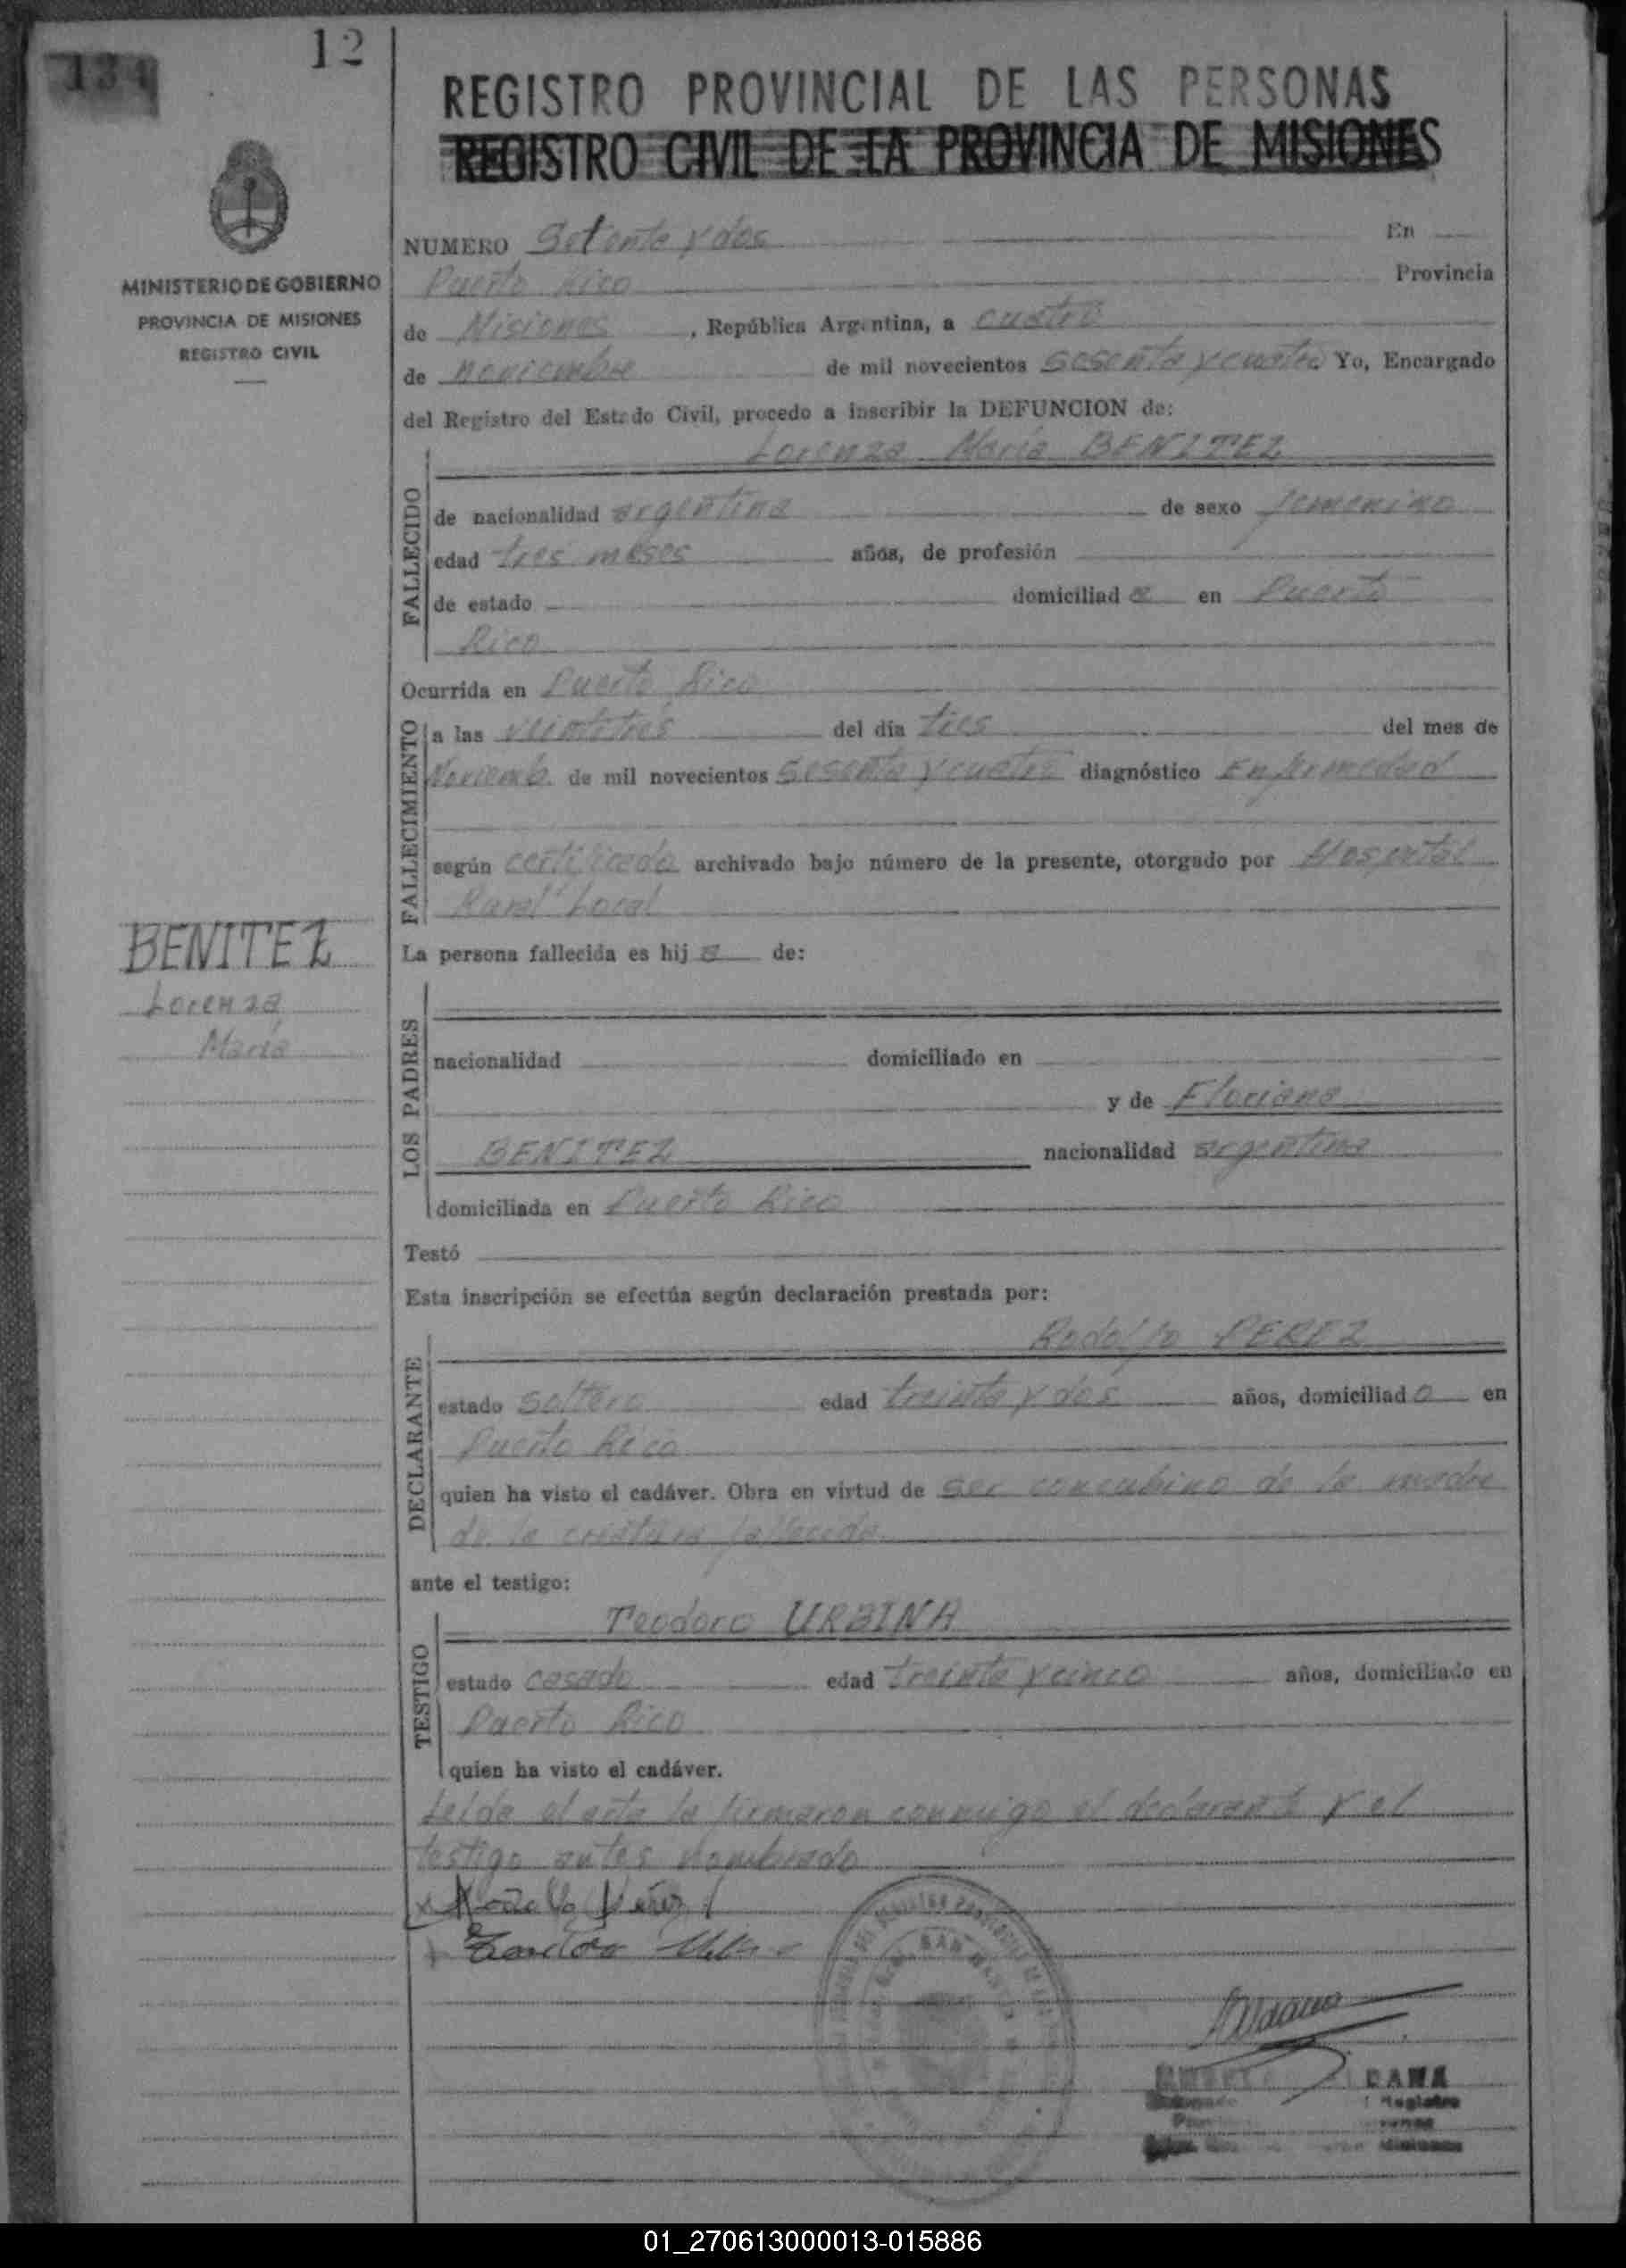 12
134
REGISTRO PROVINCIAL DE LAS PERSONAS
REGISTRO CIVIL DE LA PROVINCIA DE MISIONES
MINISTERIO DE GOBIERNO
PROVINCIA DE MISIONES
REGISTRO CIVIL
NUMERO Setenta y dos En
Puerto Rico Provincia
de Misiones, República Argentina, a cuatro
de noviembre de mil novecientos sesenta y cuatro Yo, Encargado
del Registro del Estado Civil, procedo a inscribir la DEFUNCION de:
Lorenza María BENITEZ
FALLECIDO
de nacionalidad argentina de sexo femenino
edad tres meses años, de profesión
de estado domiciliad a en Puerto
Rico
Ocurrida en Puerto Rico
FALLECIMIENTO
a las veintitres del día tres del mes de
Noviemb. de mil novecientos sesenta y cuatro diagnóstico Enfermedad
según certificado archivado bajo número de la presente, otorgado por Hospital
Rural Local
BENITEZ
Lorenza
María
La persona fallecida es hij a de:
LOS PADRES
nacionalidad domiciliado en
y de Floriana
BENITEZ nacionalidad argentina
domiciliada en Puerto Rico
Testó
Esta inscripción se efectúa según declaración prestada por:
Rodolfo PEREZ
DECLARANTE
estado soltero edad treinta y dos años, domiciliad o en
Puerto Rico
quien ha visto el cadáver. Obra en virtud de ser concubino de la madre
de la criatura fallecida
ante el testigo:
Teodoro URBINA
TESTIGO
estado casado edad treinta y cinco años, domiciliado en
Puerto Rico
quien ha visto el cadáver.
Leída el acta la firmaron conmigo el declarante y el
testigo antes nombrado
DANA
Registro
01_270613000013-015886